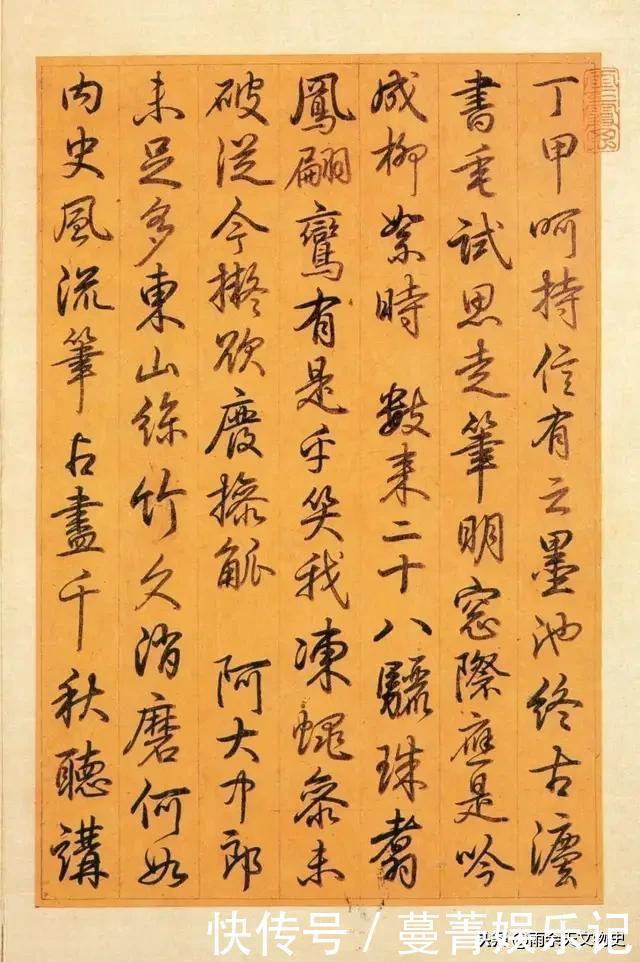 丁甲呵持信有之墨池終古灋
書垂試思走筆明窓際應是吟
成柳絮時 數来二十八驪珠翥
鳳翩鸞有是乎笑我凍蠅參未
破從今擬欲廢操觚 阿大中郎
未足多東山絲竹久消磨何如
內史風流筆占盡千秋聽講
快传号 / 蔓菁娱乐记
头条 @雨余天文物史